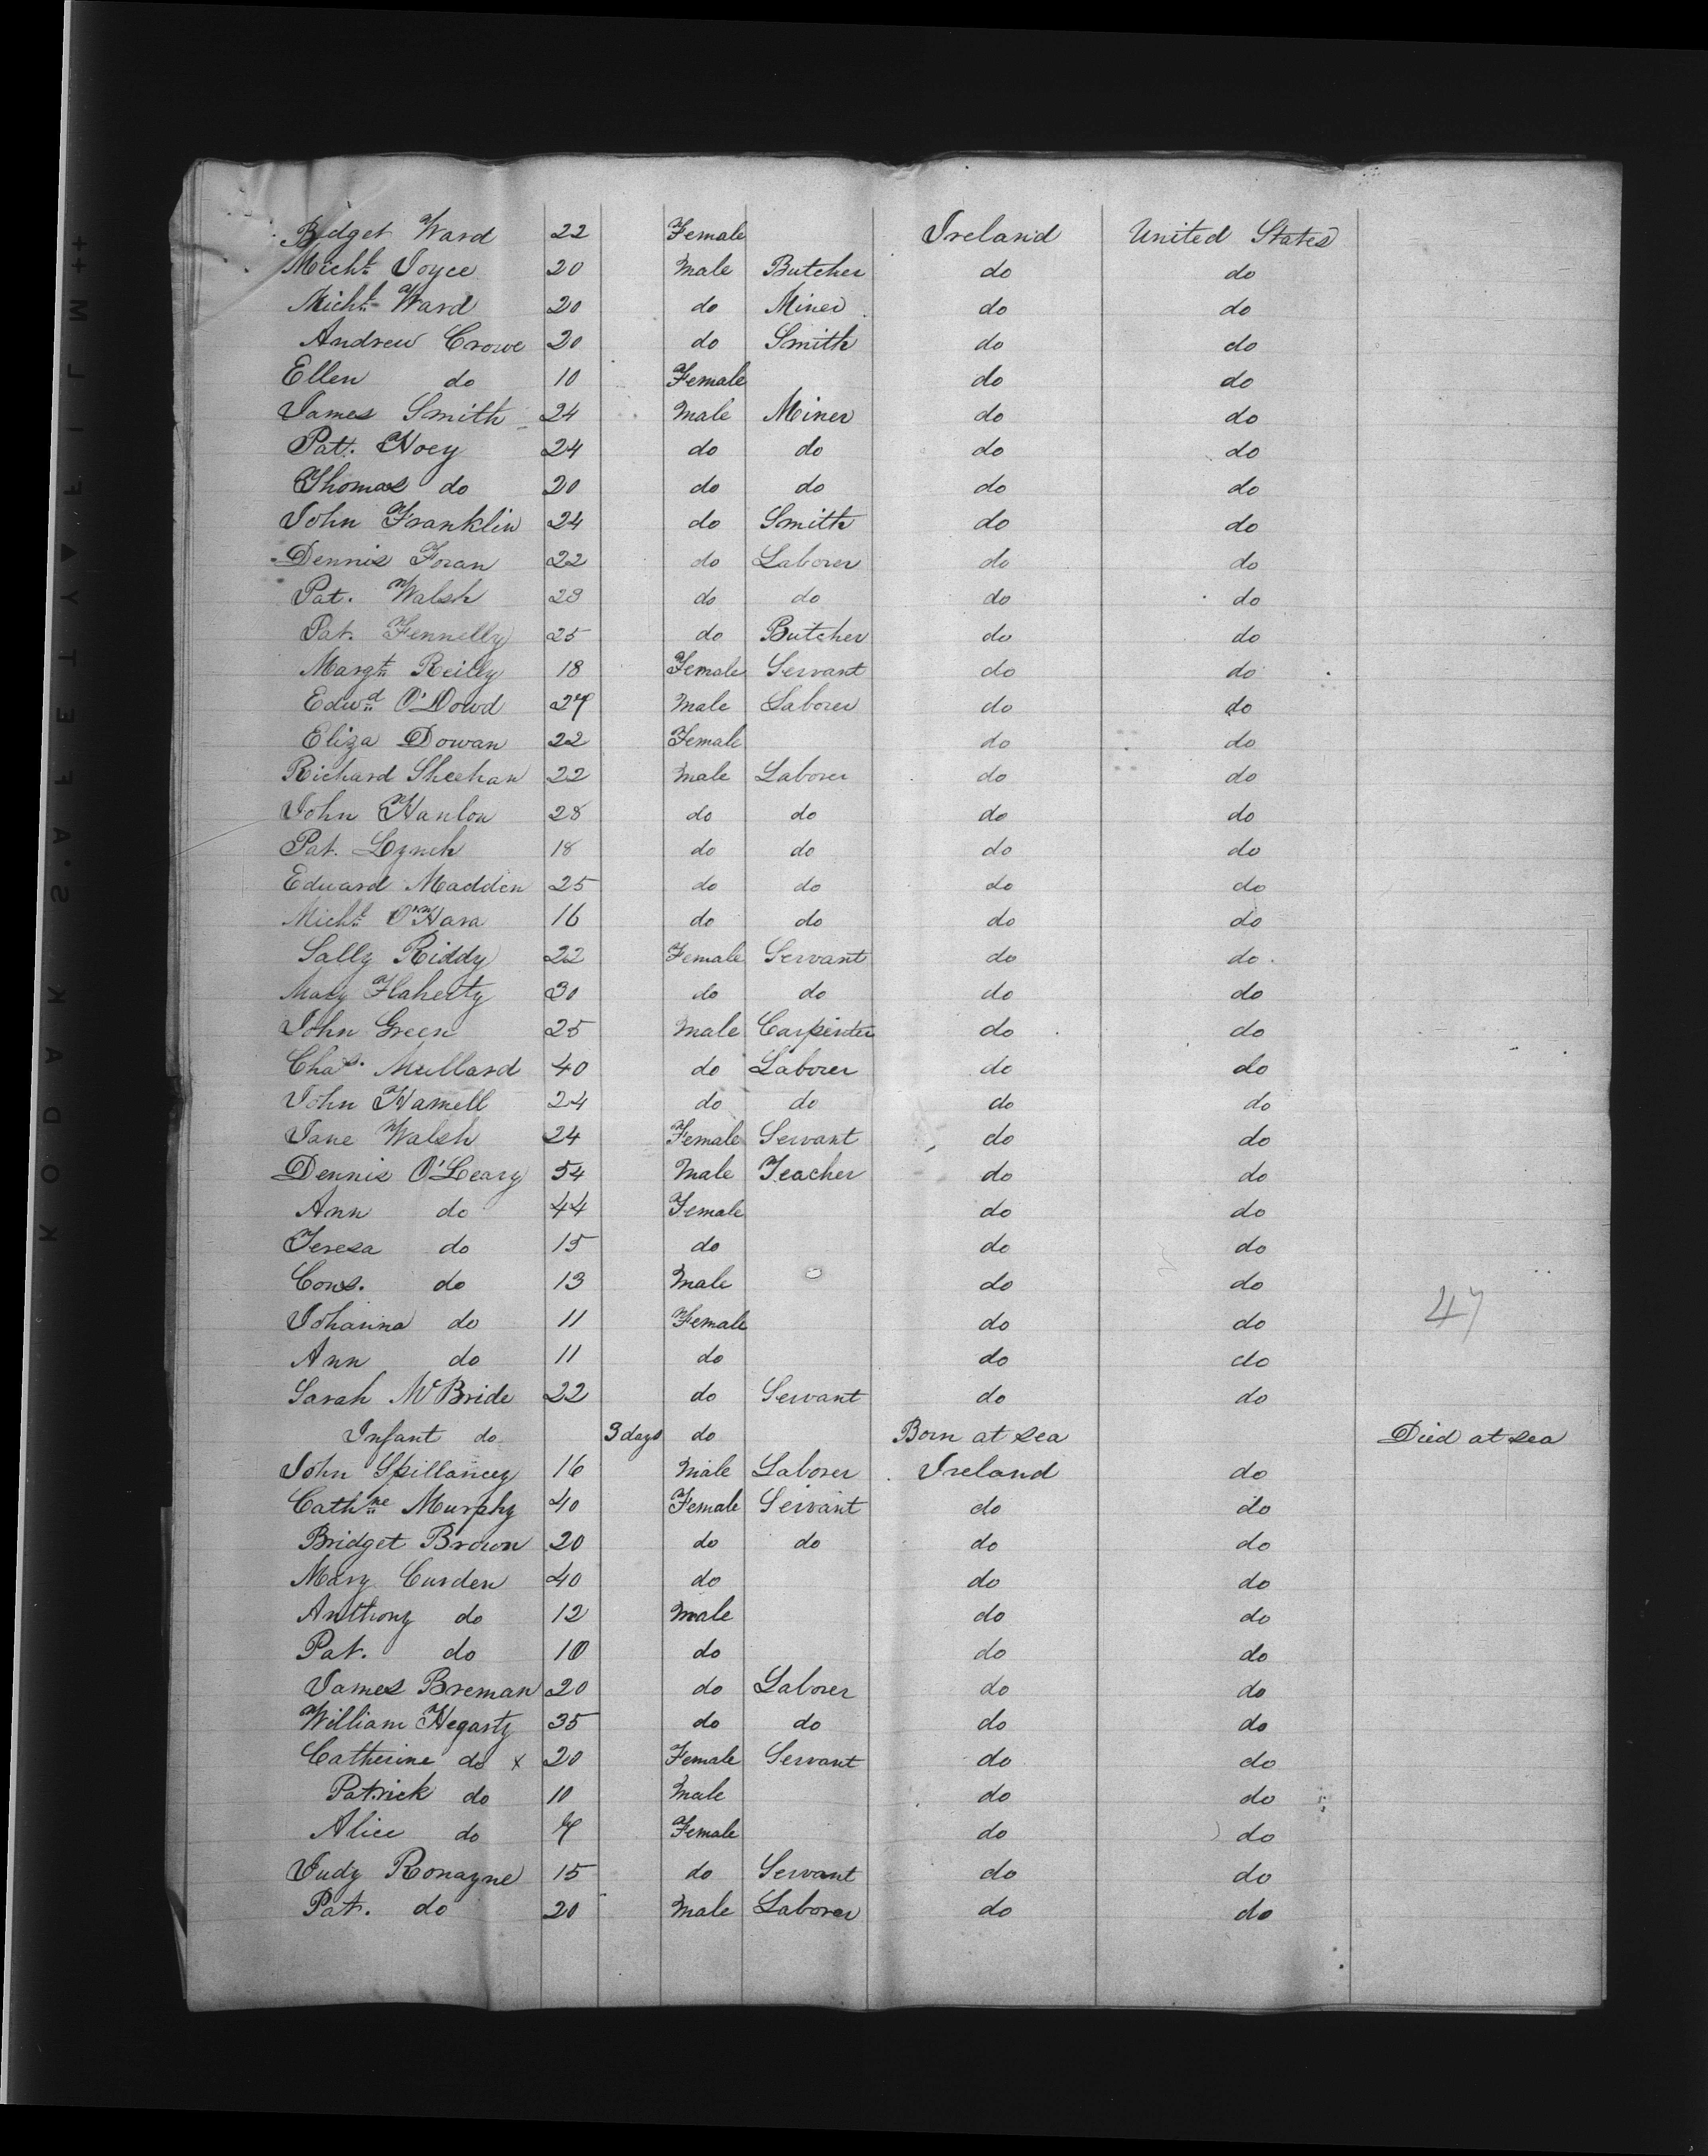 Bridget Ward 22 Female Ireland United States
Michl Joyce 20 Male Butcher do do
Michl Ward 20 do Miner do do
Andrew Crowe 20 do Smith do do
Ellen do 10 Female do do
James Smith 24 Male Miner do do
Pat. Hoey 24 do do do do
Thomas do 20 do do do do
John Franklin 24 do Smith do do
Dennis Foran 22 do Laborer do do
Pat. Walsh 23 do do do do
Pat. Fennelly 25 do Butcher do do
Margt Reilly 18 Female Servant do do
Edwd O'Dowd 27 Male Laborer do do
Eliza Dowan 22 Female do do
Richard Sheehan 22 Male Laborer do do
John Hanlon 28 do do do do
Pat. Lynch 18 do do do do
Edward Madden 25 do do do do
Michl O'Hara 16 do do do do
Sally Riddy 22 Female Servant do do
Mary Flaherty 30 do do do do
John Green 25 Male Carpenter do do
Chas. Mullard 40 do Laborer do do
John Hamell 24 do do do do
Jane Walsh 24 Female Servant do do
Dennis O'Leary 54 Male Teacher do do
Ann do 44 Female do do
Teresa do 15 do do do
Cons. do 13 Male do do
Johanna do 11 Female do do 47
Ann do 11 do do do
Sarah McBride 22 do Servant do do
Infant do 3 days do Born at sea Died at sea
John Spillancey 16 Male Laborer Ireland do
Cathne Murphy 40 Female Servant do do
Bridget Brown 20 do do do do
Mary Curden 40 do do do
Anthony do 12 Male do do
Pat. do 10 do do do
James Breman 20 do Laborer do do
William Hegarty 35 do do do do
Catherine do x 20 Female Servant do do
Patrick do 10 Male do do
Alice do 7 Female do do
Judy Ronayne 15 do Servant do do
Pat. do 20 Male Laborer do do
KODAK·S·AFETY▲FILM++